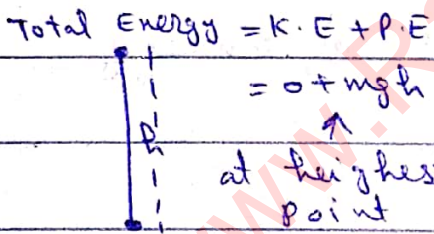 Total Energy = K.E + P.E
= 0 + mgh
h
at heighes
point